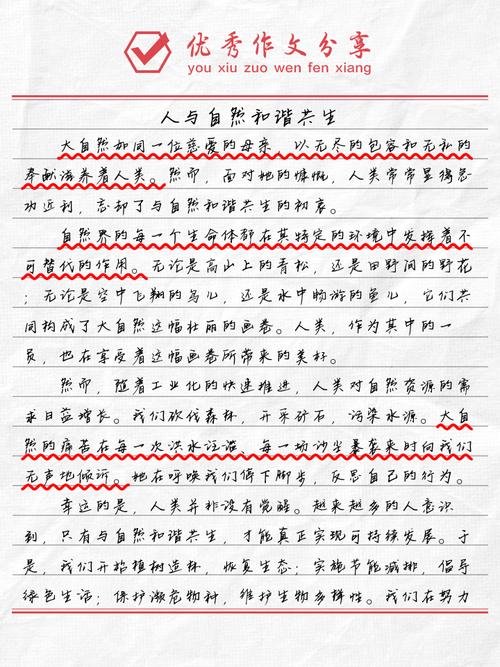 优秀作文分享
you xiu zuo wen fen xiang
人与自然和谐共生
大自然如同一位慈爱的母亲，以无尽的包容和无私的
奉献滋养着人类。然而，面对她的慷慨，人类常常显得急
功近利，忘却了与自然和谐共生的初衷。
自然界的每一个生命体都在其特定的环境中发挥着不
可替代的作用。无论是高山上的青松，还是田野间的野花
；无论是空中飞翔的鸟儿，还是水中畅游的鱼儿，它们共
同构成了大自然这幅壮丽的画卷。人类，作为其中的一
员，也在享受着这幅画卷所带来的美好。
然而，随着工业化的快速推进，人类对自然资源的需
求日益增长。我们砍伐森林，开采矿石，污染水源。大自
然的痛苦在每一次洪水泛滥、每一场沙尘暴袭来时向我们
无声地倾诉。她在呼唤我们停下脚步，反思自己的行为。
幸运的是，人类并非没有觉醒。越来越多的人意识
到，只有与自然和谐共生，才能真正实现可持续发展。于
是，我们开始植树造林，恢复生态；实施节能减排，倡导
绿色生活；保护濒危物种，维护生物多样性。我们在努力